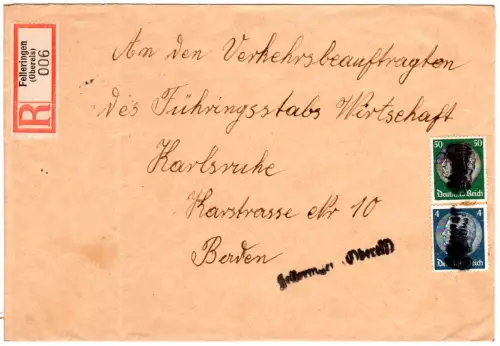 Felleringen
(Oberels)
006
R
An den Verkehrsbeauftragten
des Führingsstabs Wirtschaft
Karlsruhe
Karstrasse Nr 10
Baden
50 50
Deutsches Reich
4 4
Deutsches Reich
Felleringen (Oberels)